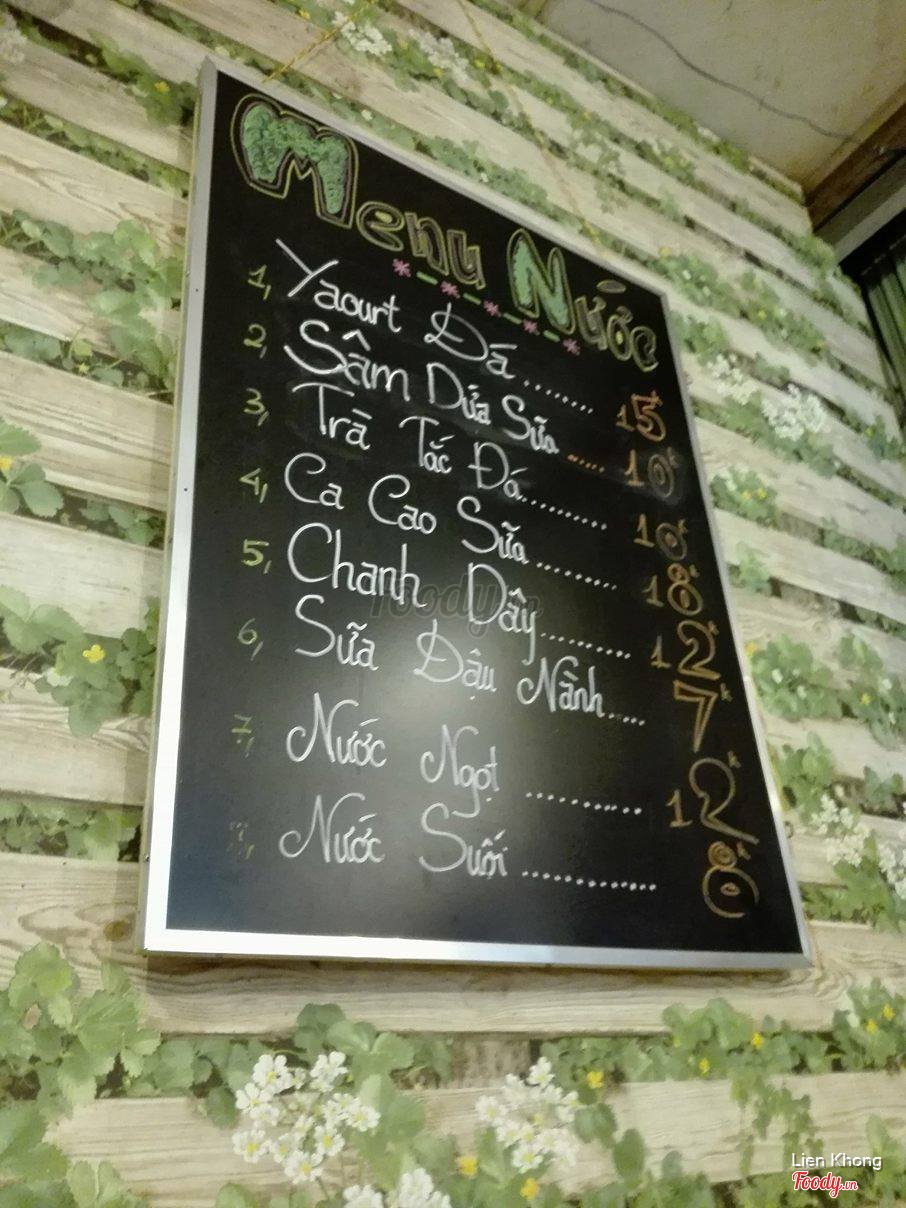 Menu Nước
1, Yaourt Đá ........ 15k
2, Sâm Dứa Sữa ..... 10k
3, Trà Tắc Đá ......... 10k
4, Ca Cao Sữa ......... 18k
5, Chanh Dây ......... 12k
6, Sữa Đậu Nành ..... 7k
7, Nước Ngọt ........... 12k
Nước Suối ............. 8
Foody.vn
Lien Khong
Foody.vn